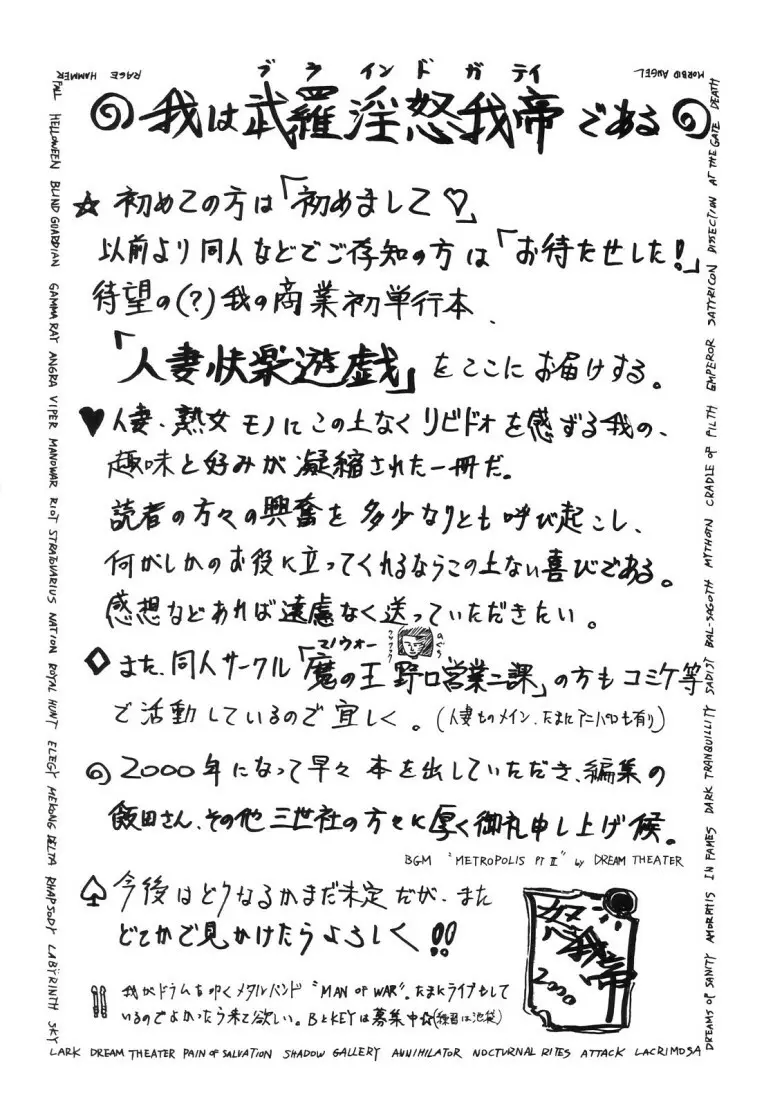 MORBID ANGEL
RAGE HAMMER
FALL HELLOWEEN BLIND GUARDIAN GAMMA RAY ANGRA VIPER MANOWAR RIOT STRATOVARIUS NATION ROYAL HUNT ELEGY MEKONG DELTA RHAPSODY LABŸRINTH SKY
ブラインドガディ
我は武羅淫怒我帝である
☆初めての方は「初めまして♡」
以前より同人などでご存知の方は「お待たせした!」
待望の(?)我の商業初単行本、
「人妻快楽遊戯」をここにお届けする。
♥人妻、熟女モノにこの上なくリビドォを感ずる我の、
趣味と好みが凝縮された一冊だ。
読者の方々の興奮を多少なりとも呼び起こし、
何がしかのお役に立ってくれるならこの上ない喜びである。
感想などあれば遠慮なく送っていただきたい。
マノウォー
◇また、同人サークル「魔の王 野口営業二課」の方もコミケ等
で活動しているので宜しく。(人妻ものメイン、たまにアニパロも有り)
2000年になって早々本を出していただき、編集の
飯田さん、その他三世社の方々に厚く御礼申し上げ候。
BGM "METROPOLIS PT II" by DREAM THEATER
♤今後はどうなるかまだ未定だが、また
どこかで見かけたらよろしく!!
我がドラムを叩くメタルバンド"MAN OF WAR"。たまにライブもして
いるのでよかったら来て欲しい。BとKEYは募集中☆(練習は池袋)
我帝
2000
LARK DREAM THEATER PAIN OF SALVATION SHADOW GALLERY ANNIHILATOR NOCTURNAL RITES ATTACK LACRIMOSA
DREAMS OF SANITY AMORPHIS IN FAMES DARK TRANQUILLITY SADIST BAL-SAGOTH MYTHOTN CRADLE OF FILTH EMPEROR SATYRICON DISSECTION AT THE GATE DEATH